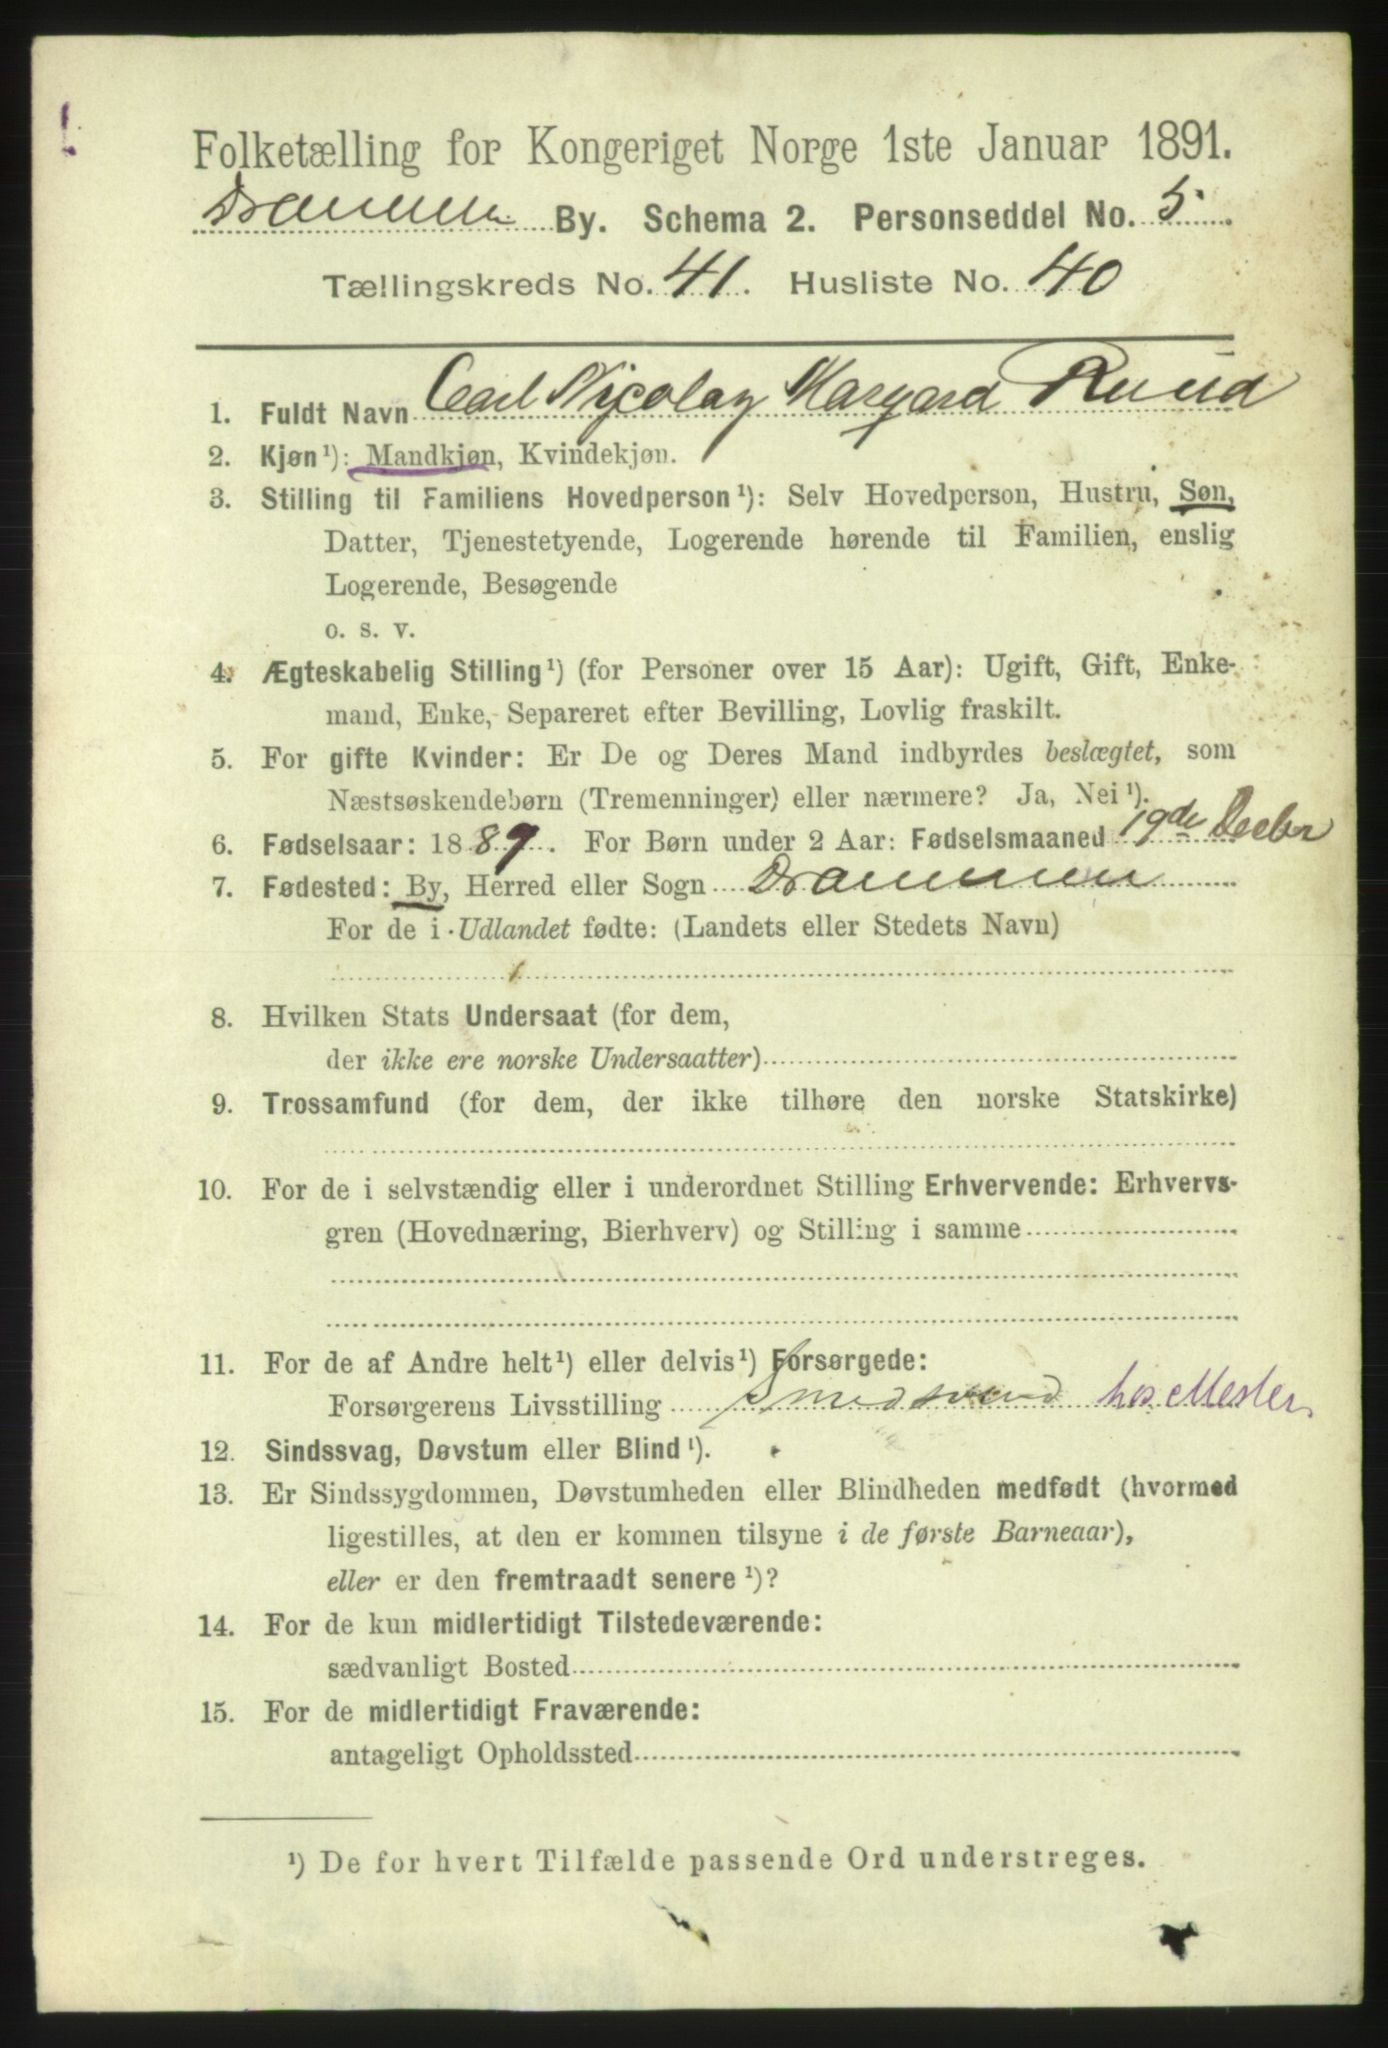 Folketælling for Kongeriget Norge 1ste Januar 1891.
Drammen By. Schema 2. Personseddel No. 5
Tællingskreds No. 41. Husliste No. 40
1. Fuldt Navn Carl Nicolay Hargard Ruud
2. Kjøn¹): Mandkjøn, Kvindekjøn.
3. Stilling til Familiens Hovedperson¹): Selv Hovedperson, Hustru, Søn,
Datter, Tjenestetyende, Logerende hørende til Familien, enslig
Logerende, Besøgende
o. s. v.
4. Ægteskabelig Stilling¹) (for Personer over 15 Aar): Ugift, Gift, Enke-
mand, Enke, Separeret efter Bevilling, Lovlig fraskilt.
5. For gifte Kvinder: Er De og Deres Mand indbyrdes beslægtet, som
Næstsøskendebørn (Tremenninger) eller nærmere? Ja, Nei¹).
6. Fødselsaar: 1889. For Børn under 2 Aar: Fødselsmaaned 19de Decbr
7. Fødested: By, Herred eller Sogn Drammen
For de i Udlandet fødte: (Landets eller Stedets Navn)
8. Hvilken Stats Undersaat (for dem,
der ikke ere norske Undersaatter)
9. Trossamfund (for dem, der ikke tilhøre den norske Statskirke)
10. For de i selvstændig eller i underordnet Stilling Erhvervende: Erhvervs-
gren (Hovednæring, Bierhverv) og Stilling i samme
11. For de af Andre helt¹) eller delvis¹) Forsørgede:
Forsørgerens Livsstilling Smedsvend hos Mester
12. Sindssvag, Døvstum eller Blind¹).
13. Er Sindssygdommen, Døvstumheden eller Blindheden medfødt (hvormed
ligestilles, at den er kommen tilsyne i de første Barneaar),
eller er den fremtraadt senere¹)?
14. For de kun midlertidigt Tilstedeværende:
sædvanligt Bosted
15. For de midlertidigt Fraværende:
antageligt Opholdssted
¹) De for hvert Tilfælde passende Ord understreges.